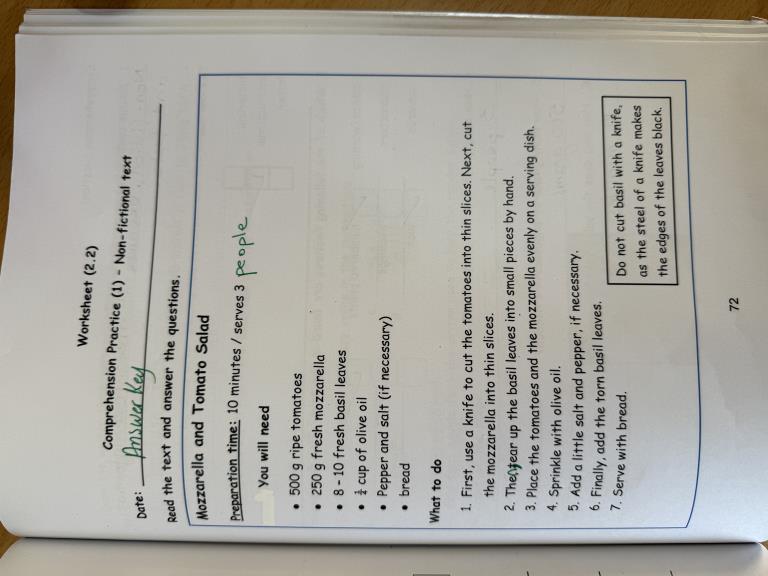 Worksheet (2.2)
Comprehension Practice (1) - Non-fictional text
Date: Answer Key
Read the text and answer the questions.
Mozzarella and Tomato Salad
Preparation time: 10 minutes / serves 3 people
You will need
• 500 g ripe tomatoes
• 250 g fresh mozzarella
• 8 - 10 fresh basil leaves
• cup of olive oil
• Pepper and salt (if necessary)
• bread
What to do
1. First, use a knife to cut the tomatoes into thin slices. Next, cut
the mozzarella into thin slices.
2. Then tear up the basil leaves into small pieces by hand.
3. Place the tomatoes and the mozzarella evenly on a serving dish.
4. Sprinkle with olive oil.
5. Add a little salt and pepper, if necessary.
6. Finally, add the torn basil leaves.
7. Serve with bread.
Do not cut basil with a knife,
as the steel of a knife makes
the edges of the leaves black.
72